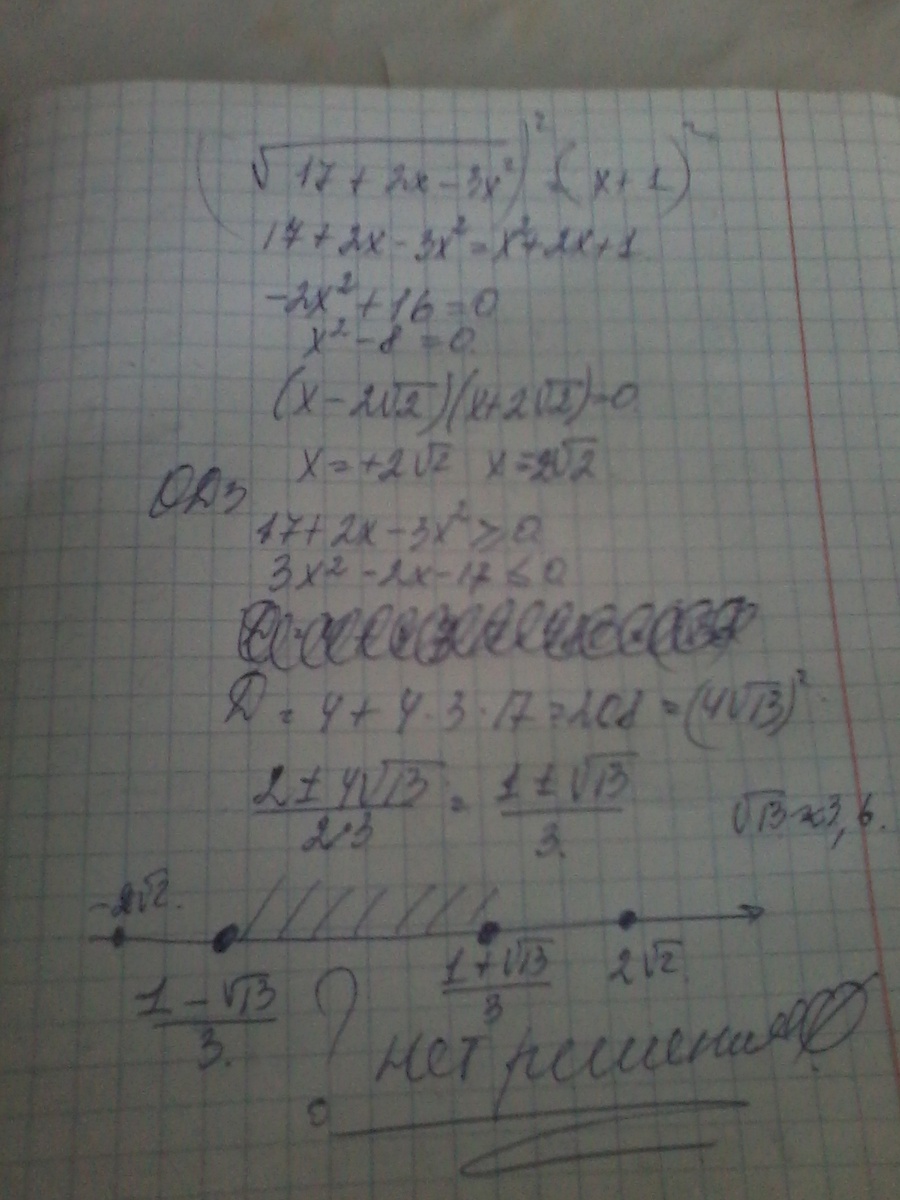 (√17 + 2x - 3x²)² = (x + 1)²
17 + 2x - 3x² = x² + 2x + 1
-2x² + 16 = 0
x² - 8 = 0
(x - 2√2)(x + 2√2) = 0
x = +2√2 x = -2√2
ОДЗ
17 + 2x - 3x² ≥ 0
3x² - 2x - 17 ≤ 0
D = 4 + 4·3·17 = 208 = (4√13)²
(2 ± 4√13)/(2·3) = (1 ± √13)/3.
√13 ≈ 3,6.
-2√2.
(1 - √13)/3. (1 + √13)/3 2√2.
?
нет решения